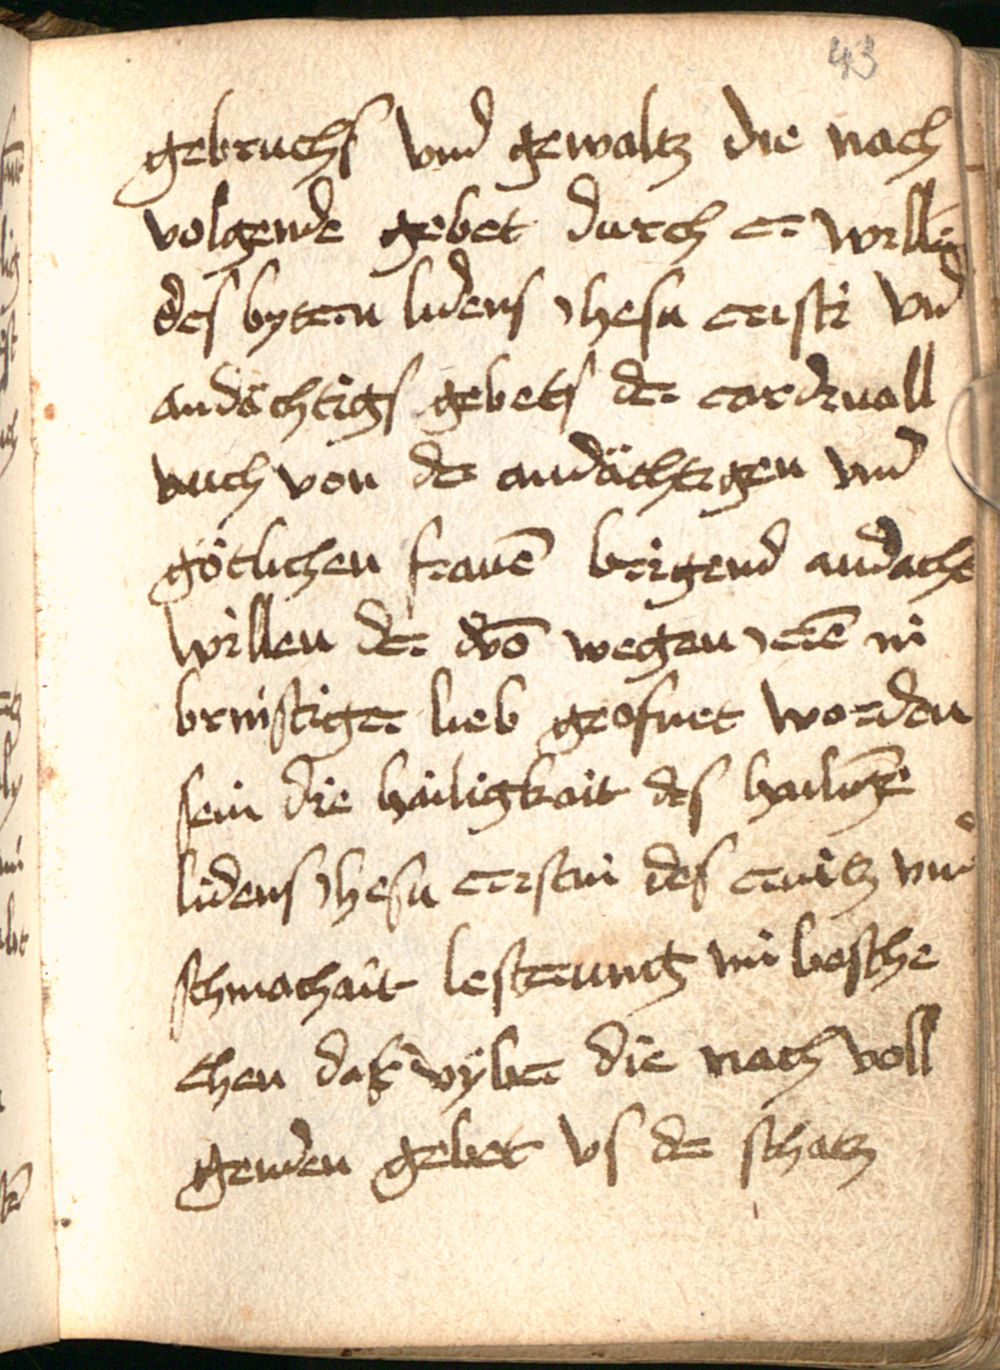 43
gebruchs vnd gewaltz die nach
volgende gebet durch er willig
des byttern lidens Jhesu cristi vnd
andächtigs gebets der cardinall
auch von der andächtigen vnd
götlichen frauen brigend andacht
willen der wegen ierē in
brinstiger lieb geofnet worden
sein die hailigkait des hailigē
lidens Jhesu cristi des crutz vnd
schmachait lestrung im besche
chen dar vyber die nach voll
genden gebet vs de schatz